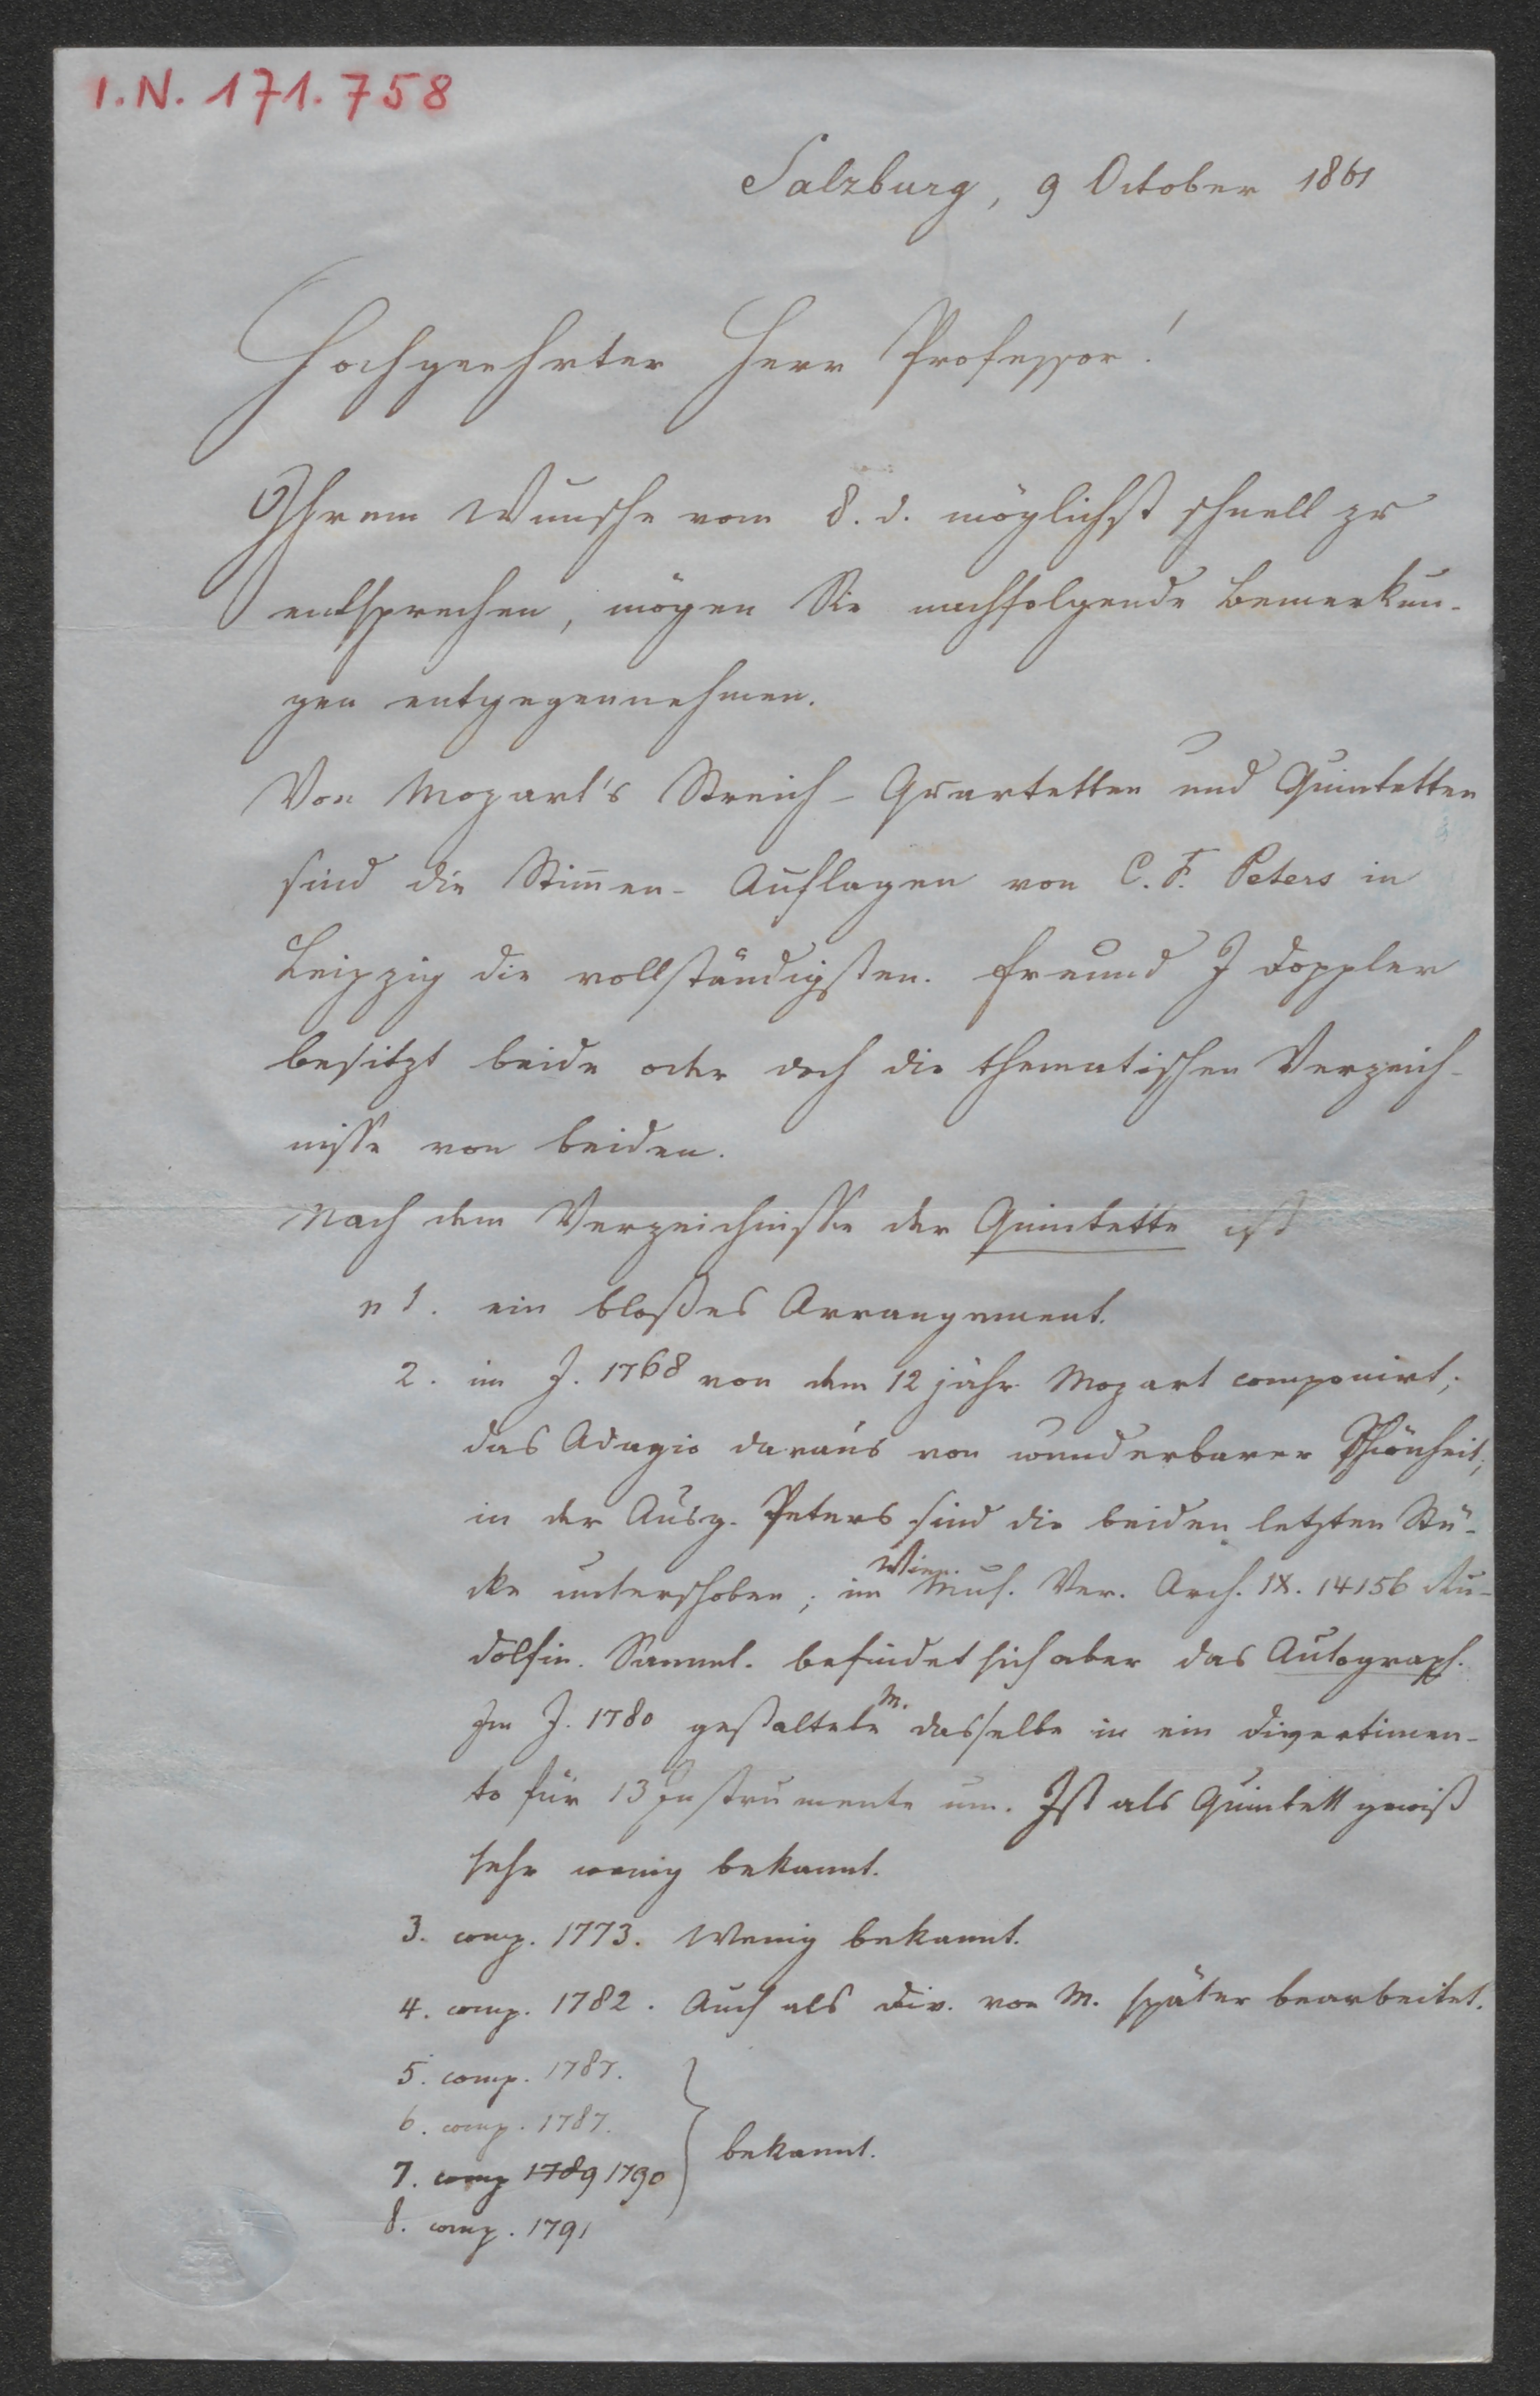 I.N. 171.758
Salzburg, 9 October 1861
Hochgeehrter Herr Professor!
Ihrem Wunsche vom 8. d. möglichst schnell zu
entsprechen, mögen Sie nachfolgende Bemerkun-
gen entgegennehmen.
Von Mozart's Streich-Quartetten und Quintetten
sind die Stim̄en-Auflagen von C. F. Peters in
Leipzig die vollständigsten. Freund J Doppler
besitzt beide oder doch die thematischen Verzeich-
nisse von beiden.
Nach dem Verzeichnisse der Quintette ist
n 1. ein bloßes Arrangement.
2. im J. 1768 von dem 12 jähr Mozart componirt;
das Adagio daraus von wunderbarer Schönheit;
in der Ausg. Peters sind die beiden letzten Stü-
cke unterschoben; im Wien. Mus. Ver. Arch. IX. 14156 Ru-
dolfin. Samml. befindet sich aber das Autograph.
Im J. 1780 gestaltete M. dasselbe in ein Divertimen-
to für 13 Instrumente um. Ist als Quintett gewiß
sehr wenig bekannt.
3. comp. 1773. Wenig bekannt.
4. comp. 1782. Auch als Div. von M. später bearbeitet.
5. comp. 1787.
6. comp. 1787.
7. comp 1789 1790
bekannt.
8. comp. 1791